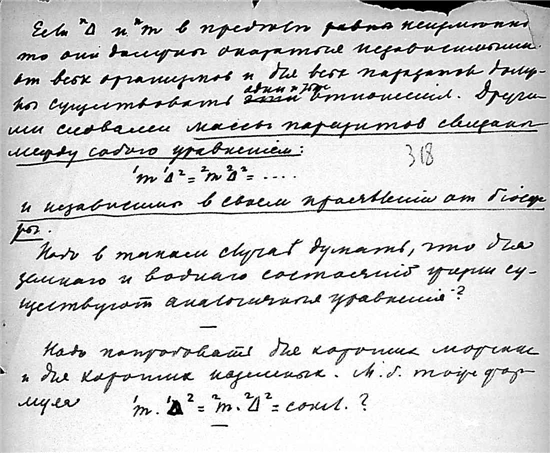 Если ⁿΔ и ⁿm в пределах равны неизменно
то они должны оказаться независимыми
от всех организмов и для всех паразитов долж-
ны существовать эти одни и те же отношения. Други-
ми словами массы паразитов связаны
между собою уравнением:
¹m ¹Δ² = ²m ²Δ² = ....
318
и независимы в своем проявлении от биосфе-
ры.
Надо в таком случае думать, что для
земного и водного состояний жизни су-
ществуют аналогичные уравнения?
Надо попробовать для хороших морских
и для хороших наземных. М.б. тоже фор-
мула ¹m · ¹Δ² = ²m · ²Δ² = const. ?